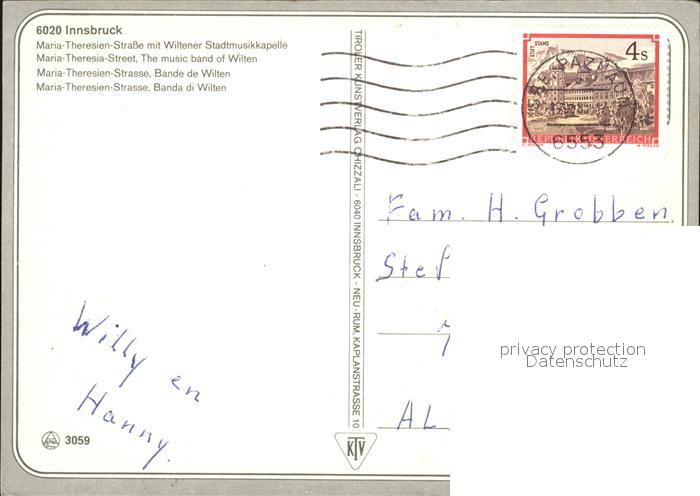 6020 Innsbruck
Maria-Theresien-Straße mit Wiltener Stadtmusikkapelle
Maria-Theresia-Street, The music band of Wilten
Maria-Theresien-Strasse, Bande de Wilten
Maria-Theresien-Strasse, Banda di Wilten
Willy en
Hanny.
3059
TIROLER KUNSTVERLAG CHIZZALI · 6040 INNSBRUCK - NEU-RUM, KAPLANSTRASSE 10
KTV
STIFT STAMS
4s
REPUBLIK ÖSTERREICH
6553
Fam. H. Grobben.
Stef
AL
privacy protection
Datenschutz